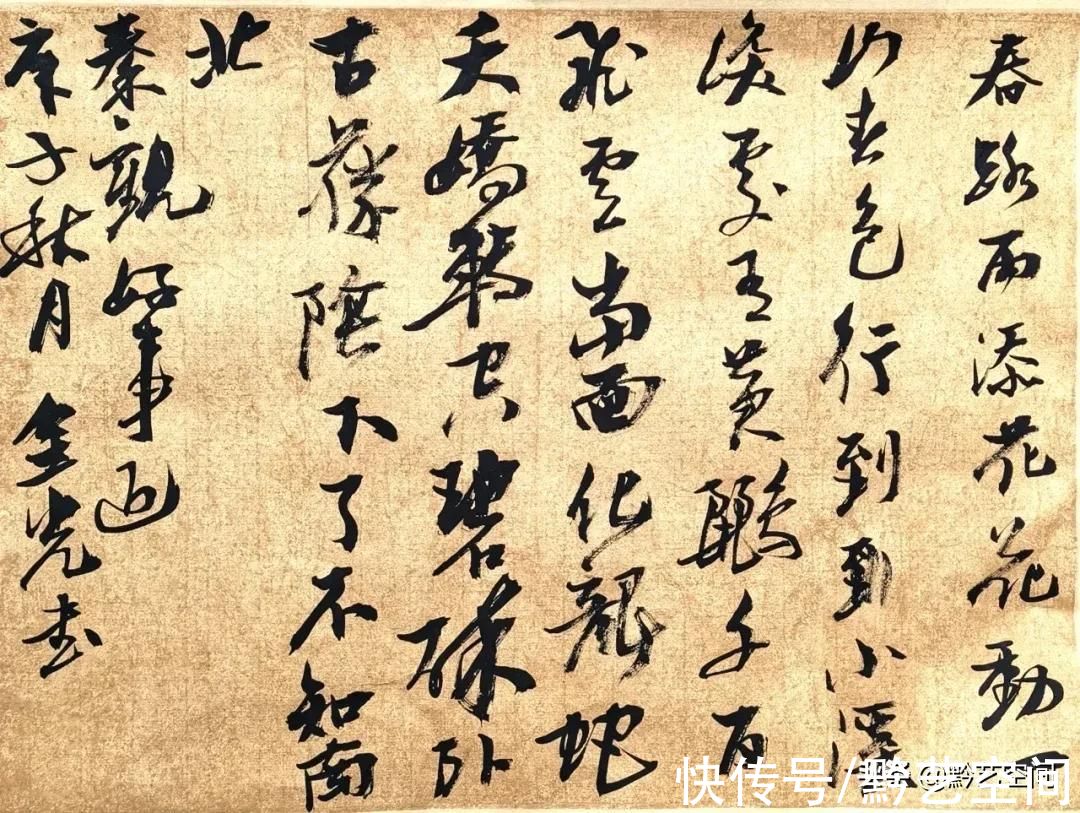 春路雨添花花動一
山春色行到到小溪
深處有黃鸝千百
飛雲當面化龍蛇
夭嬌轉空碧醉卧
古藤陰下了不知南
北
秦觀好事近
庚子秋月金光書
@黔艺空间
快传号/黔艺空间